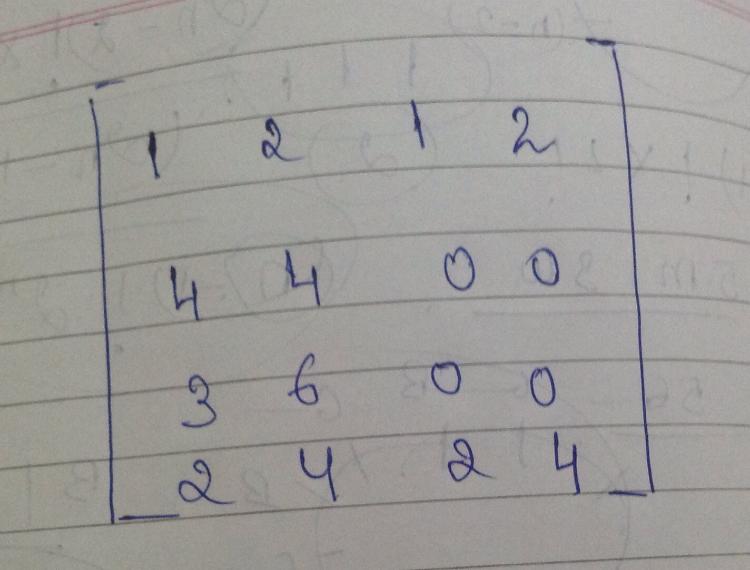 1 2 1 2
4 4 0 0
3 6 0 0
2 4 2 4